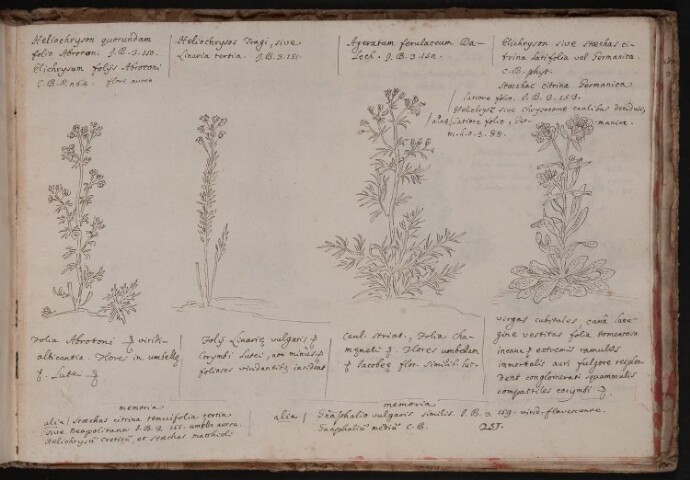 Heliochryson quorundam
folio Abrotoni J.B.3.150.
Elichrysum folijs Abrotoni
C.B.
flore aureo
Heliochrysos Tragi, sive
Linaria tertia. J.B.3.151.
Ageratum ferulaceum Da-
lech. J.B.3.
Elichryson sive stæchas ci-
trina latifolia vel Germanica.
C.B. phyt.
Stæchas citrina Germanica
latiore folio. J.B.3.153.
sive chrysocome caulibus
latiore folio, Ger-
manica.
Folia Abrotoni viridi-
albicantia. Flores in umbella
Lutei
Folijs Linariæ vulgaris
Corymbi lutei, non minus
foliosos viridantibus insident
Caul. striat. Folia Cha-
mæmeli Flores umbellam
Iacobeæ flor. similib. lut.
virgas cubitales, cana lanu-
gine vestitas folia tomentosa
incana extremis ramulis
immortalis auri fulgore resplen-
dent conglomerati squammatis
compactiles corymbi
memoria
alia Stæchas citrina tenuifolia tertia
sive Neapolitana J.B.3.155. umbella aurea.
Heliochrysu Creticu, et stæchas Matthioli
memoria
alia Gnaphalio vulgaris similis. J.B.3.159. virid. flavescente.
Gnaphaliu mediu C.B.
251.